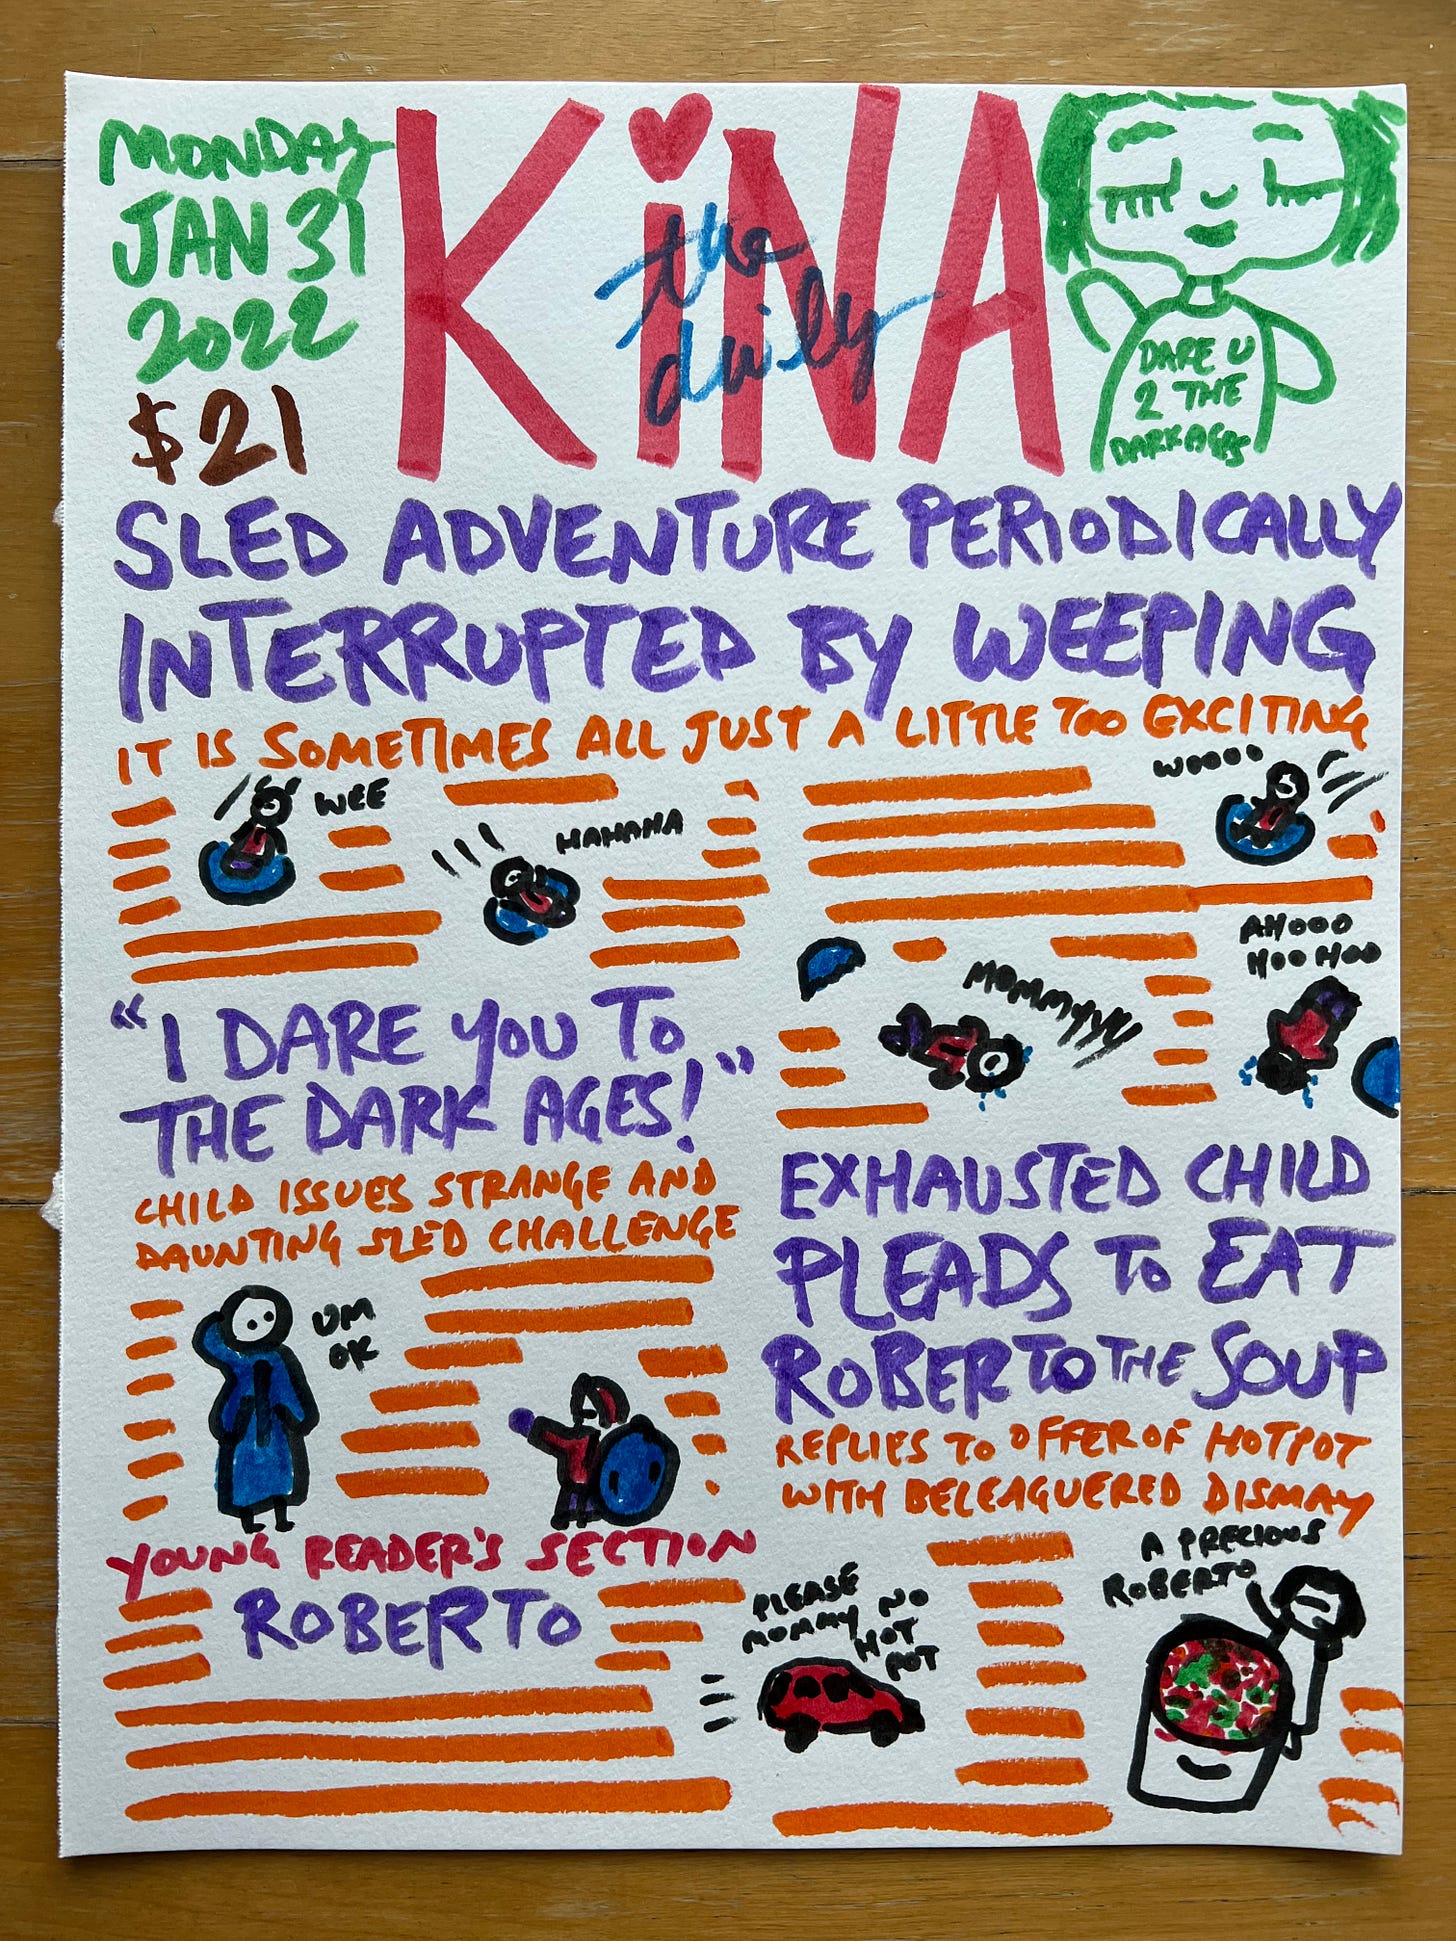 MONDAY
JAN 31
2022
$21
KiNA
the
daily
DARE U
2 THE
DARK AGES
SLED ADVENTURE PERIODICALLY
INTERRUPTED BY WEEPING
IT IS SOMETIMES ALL JUST A LITTLE TOO EXCITING
WEE
HAHAHA
WOOOO
MOMMYYY
AHOOO
HOO HOO
“I DARE YOU TO
THE DARK AGES!”
CHILD ISSUES STRANGE AND
DAUNTING SLED CHALLENGE
UM
OK
EXHAUSTED CHILD
PLEADS TO EAT
ROBERTO THE SOUP
REPLIES TO OFFER OF HOTPOT
WITH BELEAGUERED DISMAY
PLEASE
MOMMY NO
HOT
POT
A PRECIOUS
ROBERTO
YOUNG READER'S SECTION
ROBERTO